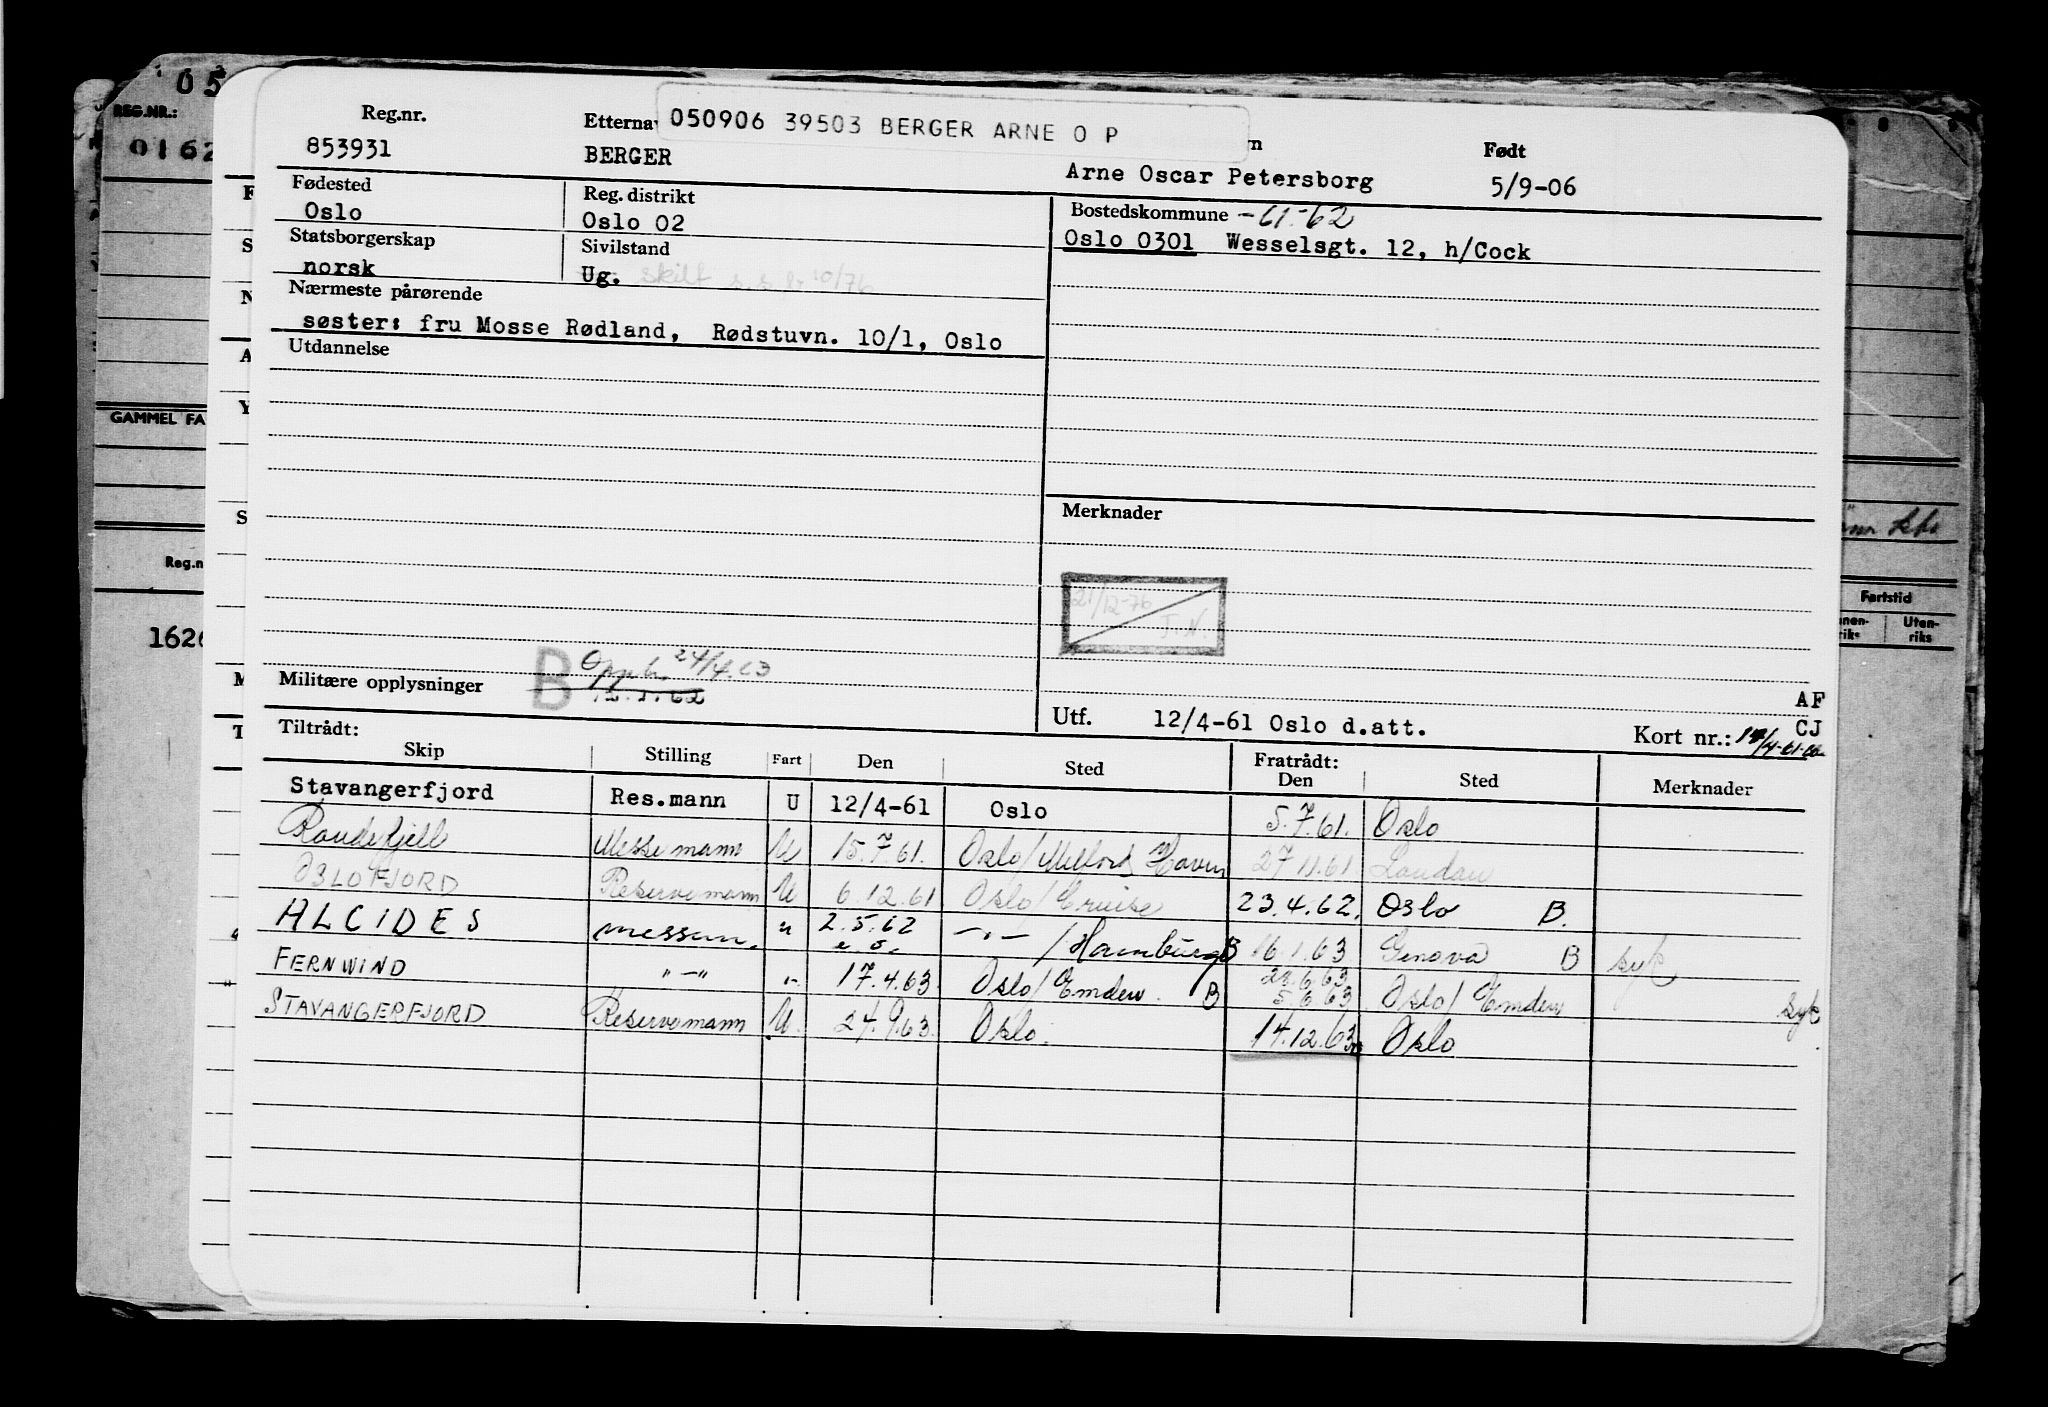 05
REG.NR.:
0162
GAMMEL FA
Reg.n
1626
050906 39503 BERGER ARNE O P
Reg.nr. Etternav n Født
853931 BERGER Arne Oscar Petersborg 5/9-06
Fødested Reg. distrikt Bostedskommune -61-62
Oslo Oslo 02 Oslo 0301 Wesselsgt. 12, h/Cock
Statsborgerskap Sivilstand
norsk Ug. skilt s.s.br 10/76
Nærmeste pårørende
søster: fru Mosse Rødland, Rødstuvn. 10/1, Oslo
Utdannelse
Merknader
21/12-76 J.N.
Militære opplysninger B 24/4.63
AF
Utf. 12/4-61 Oslo d.att. CJ
Kort nr.:
Tiltrådt: Fratrådt:
Skip Stilling Fart Den Sted Den Sted Merknader
Stavangerfjord Res.mann U 12/4-61 Oslo 5.7.61. Oslo
Rondefjell Messemann U 15.7.61. Oslo/Milford Haven 27.11.61 London
OSLOFJORD Reservemann U 6.12.61 Oslo/Cruise 23.4.62. Oslo B.
ALCIDES messem. u 2.5.62 e.o. -"- /Hamburg B 16.1.63 Genova B syk
FERNWIND "-" "- 17.4.63 Oslo/Emden. B 5.6.63 Oslo/Emden syk
STAVANGERFJORD Reservemann U. 24.9.63. Oslo. 14.12.63 Oslo
Fartstid
Uten-
riks